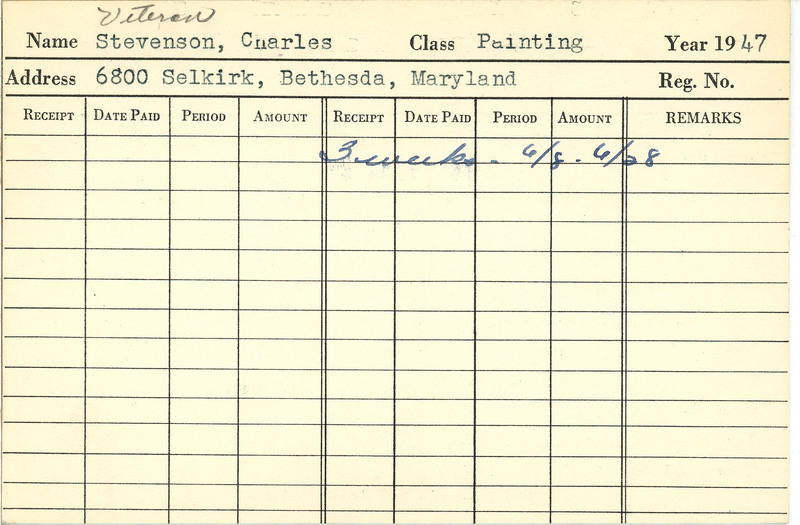 Veteran
Name Stevenson, Charles Class Painting Year 1947
Address 6800 Selkirk, Bethesda, Maryland Reg. No.
RECEIPT DATE PAID PERIOD AMOUNT RECEIPT DATE PAID PERIOD AMOUNT REMARKS
3 weeks - 6/8 - 6/28